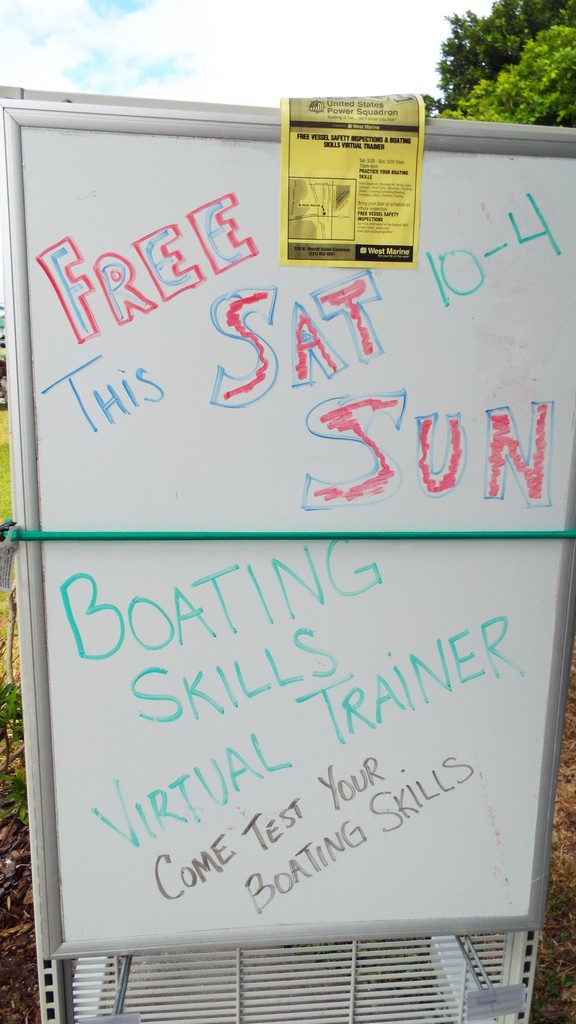 United States
Power Squadron
West Marine
FREE VESSEL SAFETY INSPECTIONS & BOATING
SKILLS VIRTUAL TRAINER
PRACTICE YOUR BOATING
SKILLS
FREE VESSEL SAFETY
INSPECTIONS
West Marine
FREE
10-4
THIS SAT
SUN
BOATING
SKILLS
VIRTUAL TRAINER
COME TEST YOUR
BOATING SKILLS